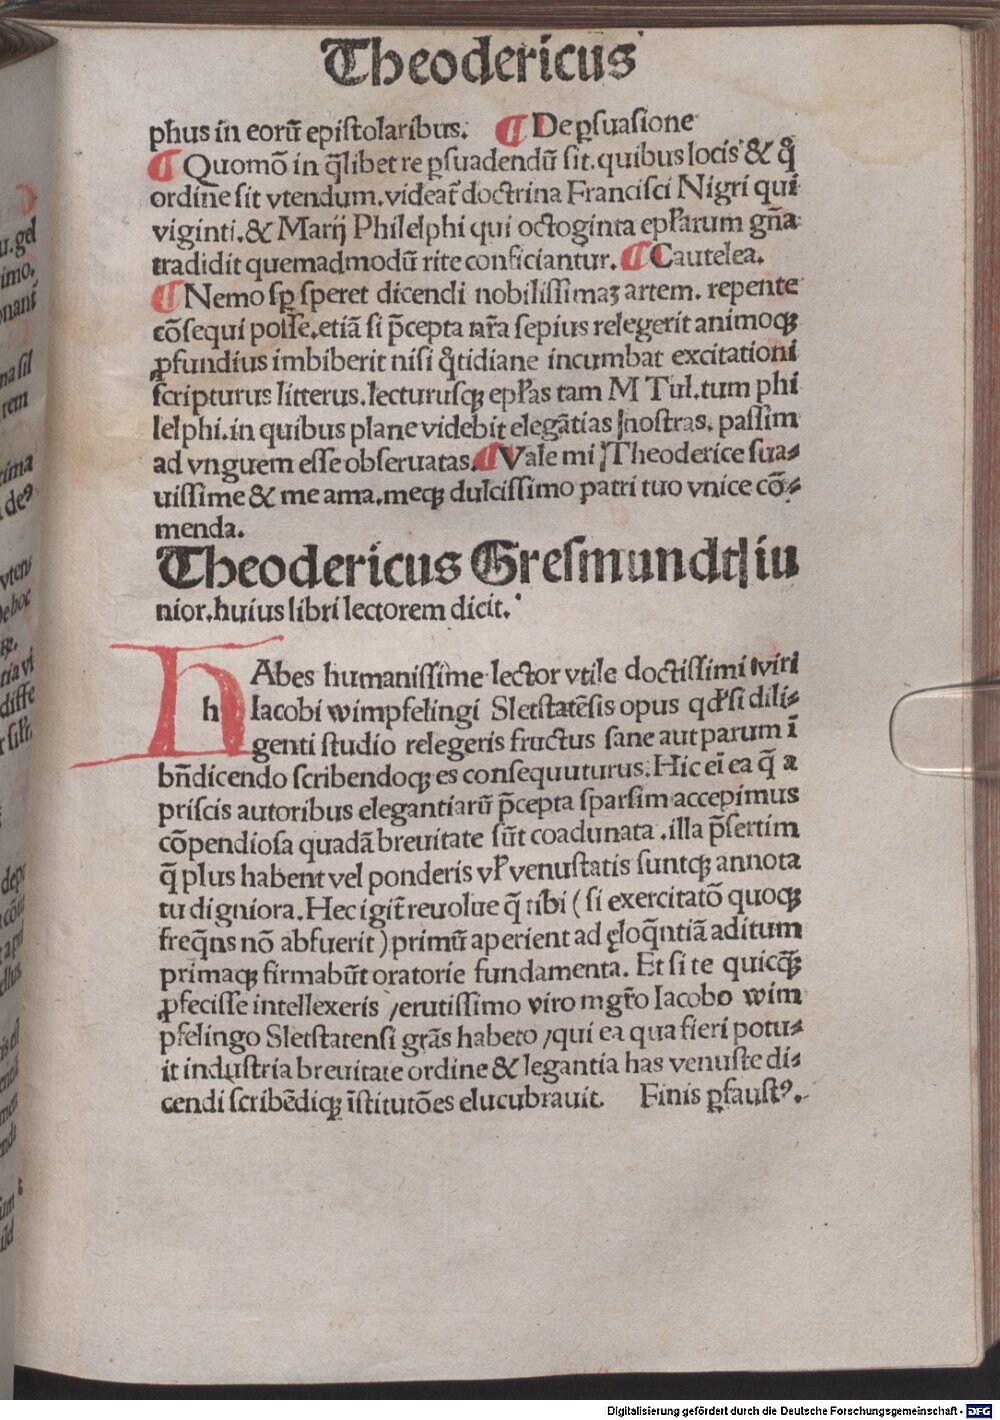 Theodericus
phus in eorū epistolaribus. ¶ De ꝑsuasione
¶ Quomō in q̄libet re ꝑsuadendū sit. quibus locis & q̊
ordine sit vtendum. videat᷑ doctrina Francisci Nigri qui
viginti. & Marij Philelphi qui octoginta ep̄larum gn̄a
tradidit quemadmodū rite conficiantur. ¶ Cautelea.
¶ Nemo sꝑ speret dicendi nobilissimaꝫ artem. repente
cōsequi posse. etiā si p̄cepta nr̄a sepius relegerit animoqꝫ
ꝓfundius imbiberit nisi q̊tidiane incumbat excitationi
scripturus litterus. lecturusqꝫ ep̄las tam M Tul. tum phi
lelphi. in quibus plane videbit elegātias nostras. passim
ad vnguem esse obseruatas. ¶ Vale mi Theoderice sua⸗
uissime & me ama. meqꝫ dulcissimo patri tuo vnice cō⸗
menda.
Theodericus Gresmundt iu
nior. huius libri lectorem dicit.
h Abes humanissime lector vtile doctissimi viri
Iacobi wimpfelingi Sletstatēsis opus qđ si dili⸗
genti studio relegeris fructus sane aut parum ī
bn̄dicendo scribendoqꝫ es consequuturus. Hic ei̅ ea q̄ a
priscis autoribus elegantiarū p̄cepta sparsim accepimus
cōpendiosa quadā breuitate sūt coadunata. illa p̄sertim
q̄ plus habent vel ponderis vł venustatis suntqꝫ annota
tu digniora. Hec igit᷑ reuolue q̄ tibi ( si exercitatō quoqꝫ
freq̄ns nō abfuerit ) primū aperient ad eloq̄ntiā aditum
primaqꝫ firmabūt oratorie fundamenta. Et si te quicq̄ꝫ
ꝓfecisse intellexeris / erutissimo viro mgr̄o Iacobo wim
pfelingo Sletstatensi grās habeto / qui ea qua fieri potu⸗
it industria breuitate ordine & legantia has venuste di⸗
cendi scribēdiqꝫ īstitutōes elucubrauit. Finis ꝑfaustꝰ.
Digitalisierung gefördert durch die Deutsche Forschungsgemeinschaft - DFG